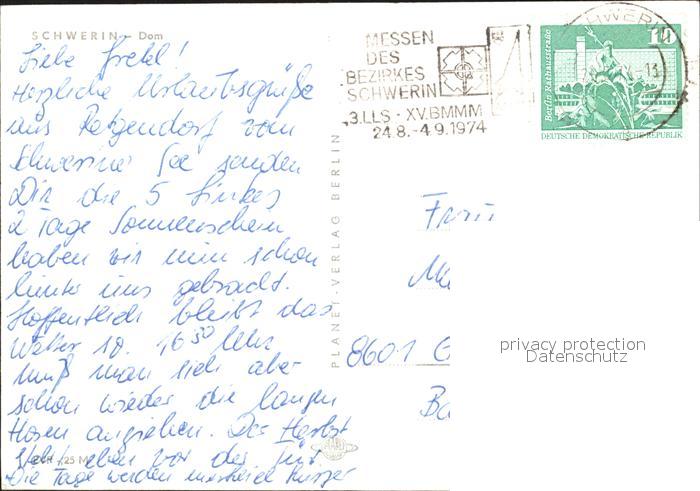 SCHWERIN – Dom
Liebe Gretel!
Herzliche Urlaubsgrüße
aus Retgendorf vom
Schweriner See senden
Dir die 5 Finkes
2 Tage Sonnenschein
haben wir nun schon
hinter uns gebracht.
Hoffentlich bleibt das
Wetter so. 16 30 Uhr
muß man sich aber
schon wieder die langen
Hosen anziehen. Der Herbst
steht eben vor der Tür.
Die Tage werden kürzer
PLANET-VERLAG BERLIN
MESSEN
DES
BEZIRKES
SCHWERIN
3.LLS · XV.BMMM
24.8.-4.9.1974
SCHWERIN
13
10
Berlin, Rathausstraße
DEUTSCHE DEMOKRATISCHE REPUBLIK
Frau
8601
privacy protection
Datenschutz